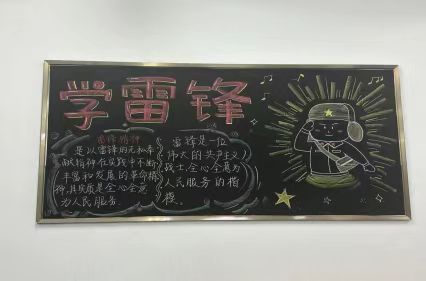 学雷锋
雷锋精神
是以雷锋的无私奉
献精神在实践中不断
丰富和发展的革命精
神,其实质是全心全意
为人民服务
雷锋是一位
伟大的共产主义
战士,全心全意为
人民服务的楷
模.